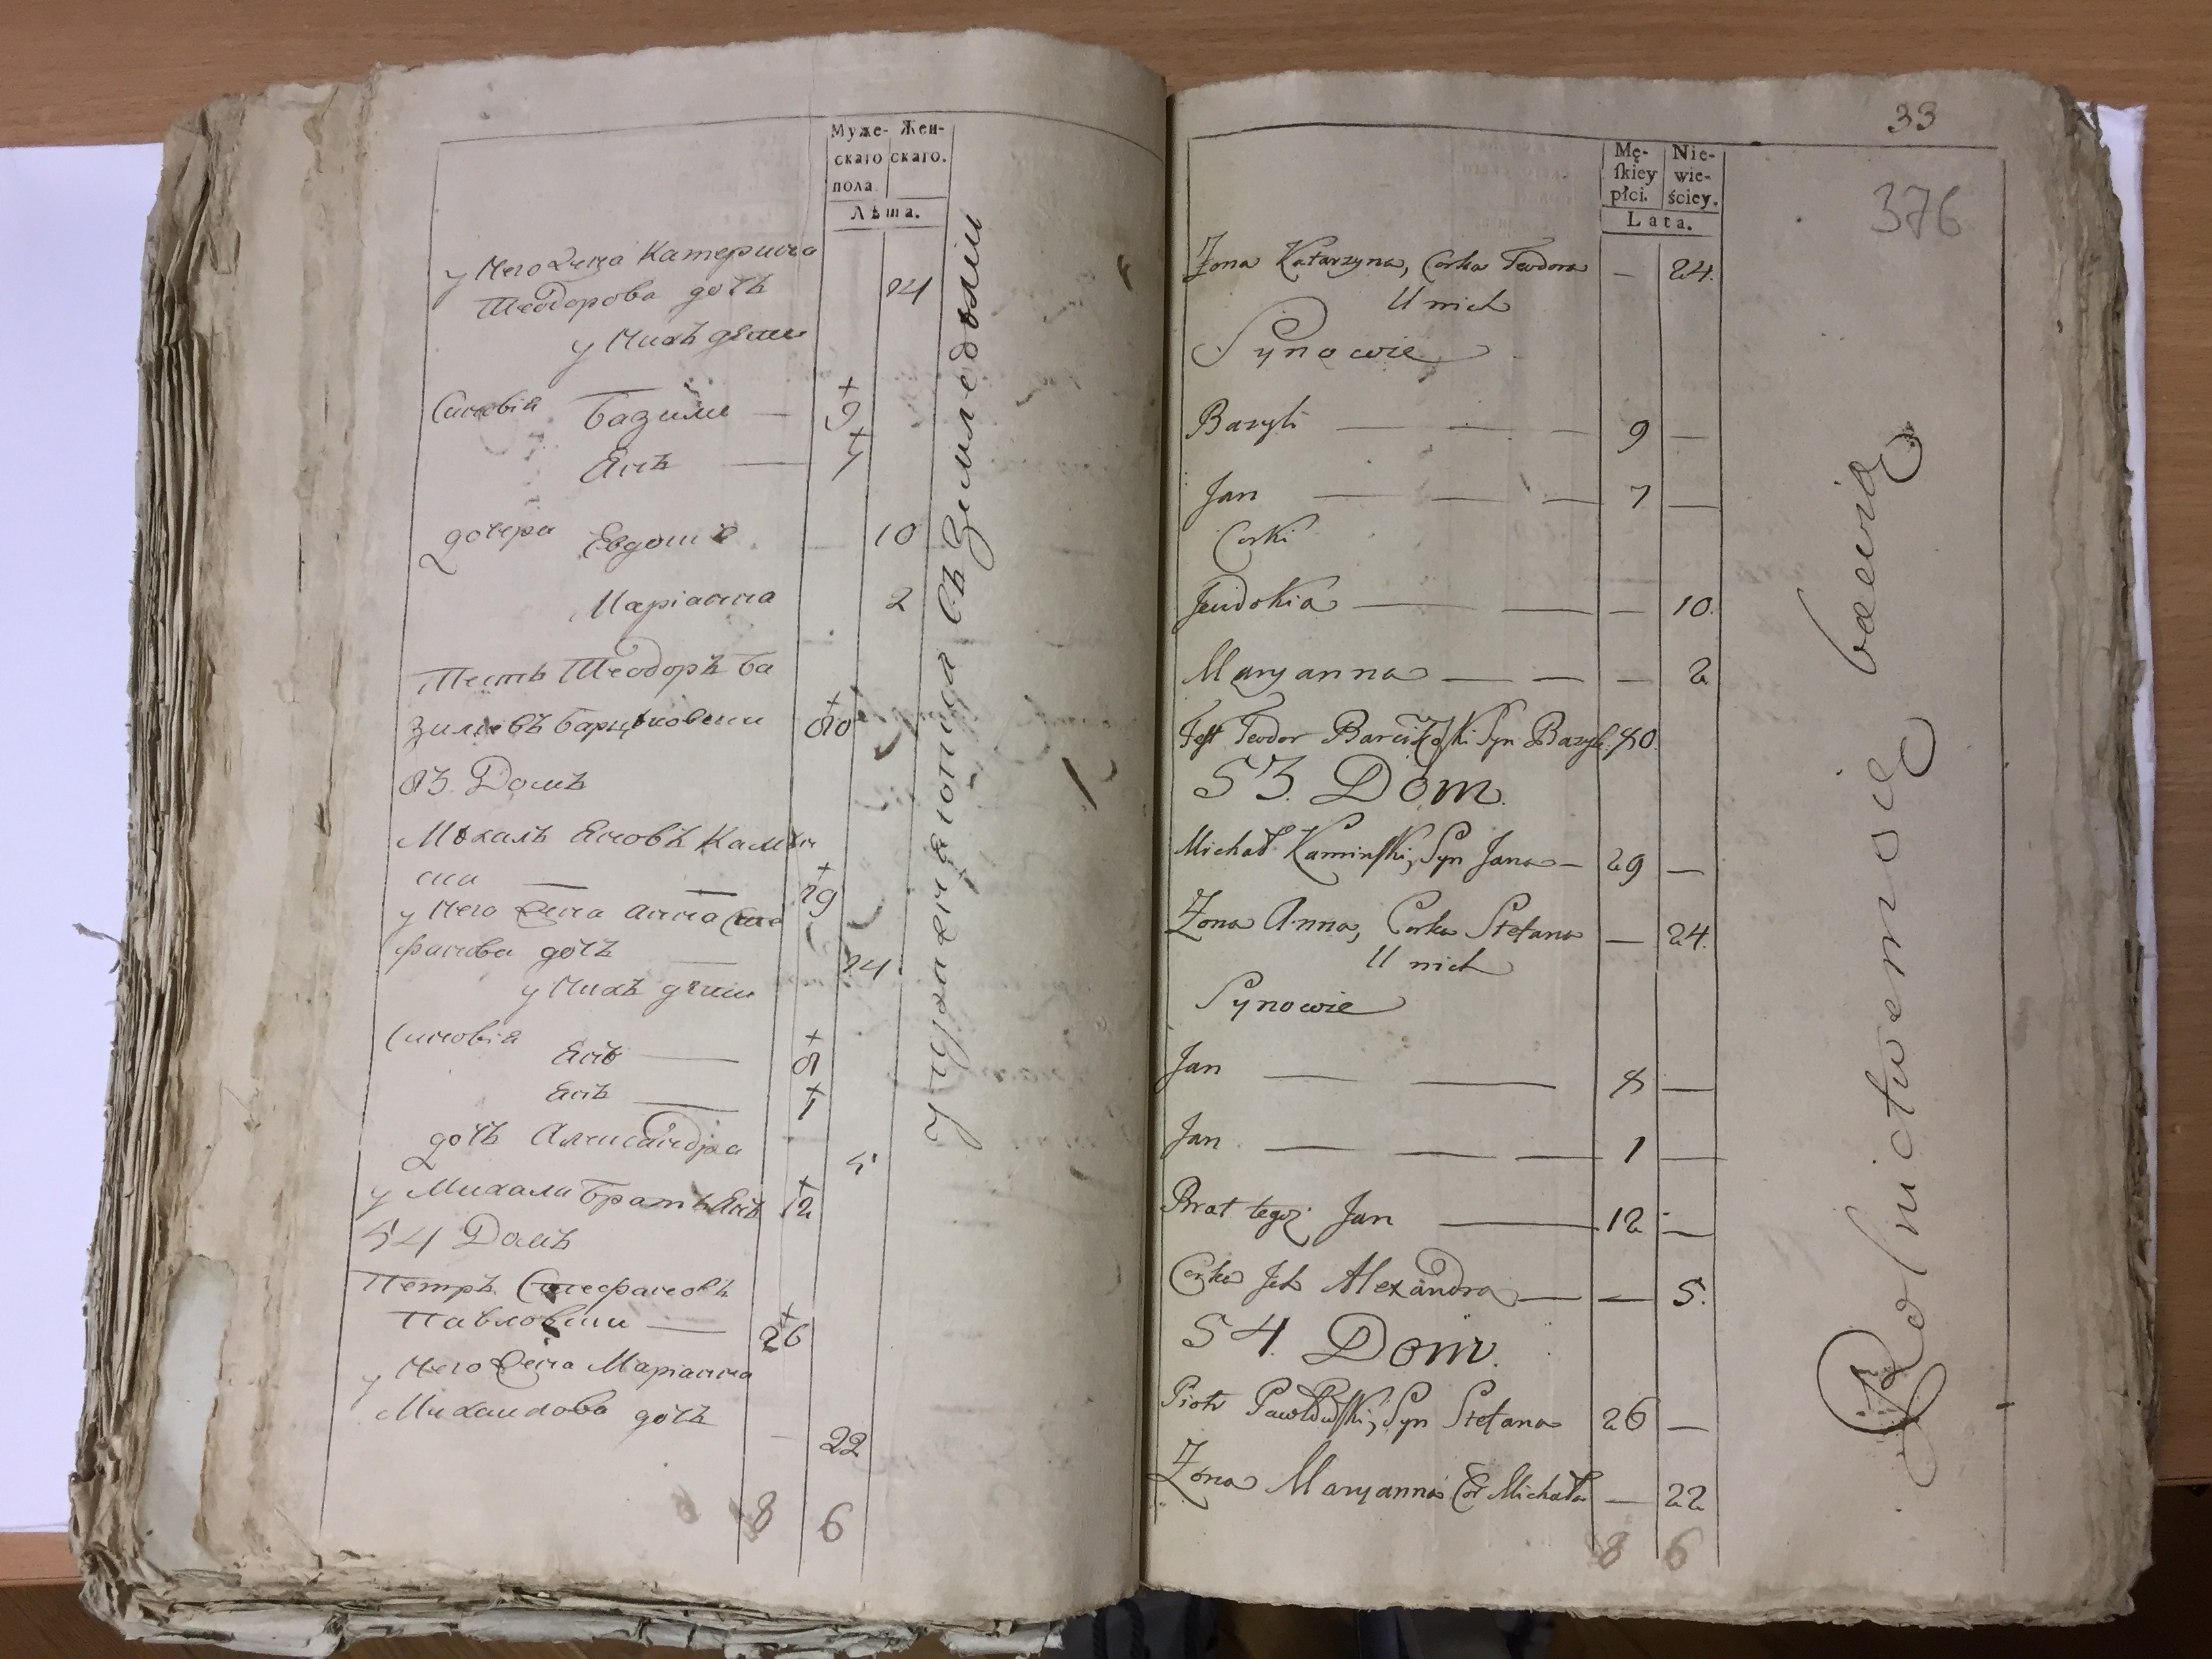 Муже- Жен-
скаго скаго.
пола
Лѣта.
у него жена Катерина
Теодорова дочь 24
у нихъ дѣти
Синовія Базили — 9
Янъ — 7
дочери Евдокія 10
Маріанна 2
Тесть Теодоръ Ба
зилевъ 80
53 Домъ
Михалъ Яновъ Камѣн
ски — — 29
у него жена Анна Сте
фанова дочь — 24
у нихъ дѣти
Синовія
Янъ — 8
Янъ — 1
дочь Александра 5
у Михала братъ Янъ 12
54 Домъ
Петръ Стефановъ
Павловски — 26
у него жена Маріанна
Михаилова дочь
- 22
8 6
упражняются въ земледѣліи
33
376
Mę- Nie-
ſkiey wie-
płci. ściey.
Lata.
Zona Katarzyna, Corka Teodora — 24.
U nich
Synowie
Bazyli — — — 9 —
Jan — — — 7 —
Corki
Jewdokia — — — 10.
Maryanna — — — 2
Test Teodor Syn Bazyl. 80.
53. Dom.
Michał Kaminſki, Syn Jana — 29 —
Zona Anna, Corka Stefana — 24.
U nich
Synowie
Jan — — 8 —
Jan — — — 1 —
Brat tegoż Jan — 12 —
Corka Ich Alexandra — — 5.
54. Dom.
Piotr Pawłowſki, Syn Stefana 26 —
Zona Maryanna Cor Michała — 22
8 6
Rolnictwem się bawią